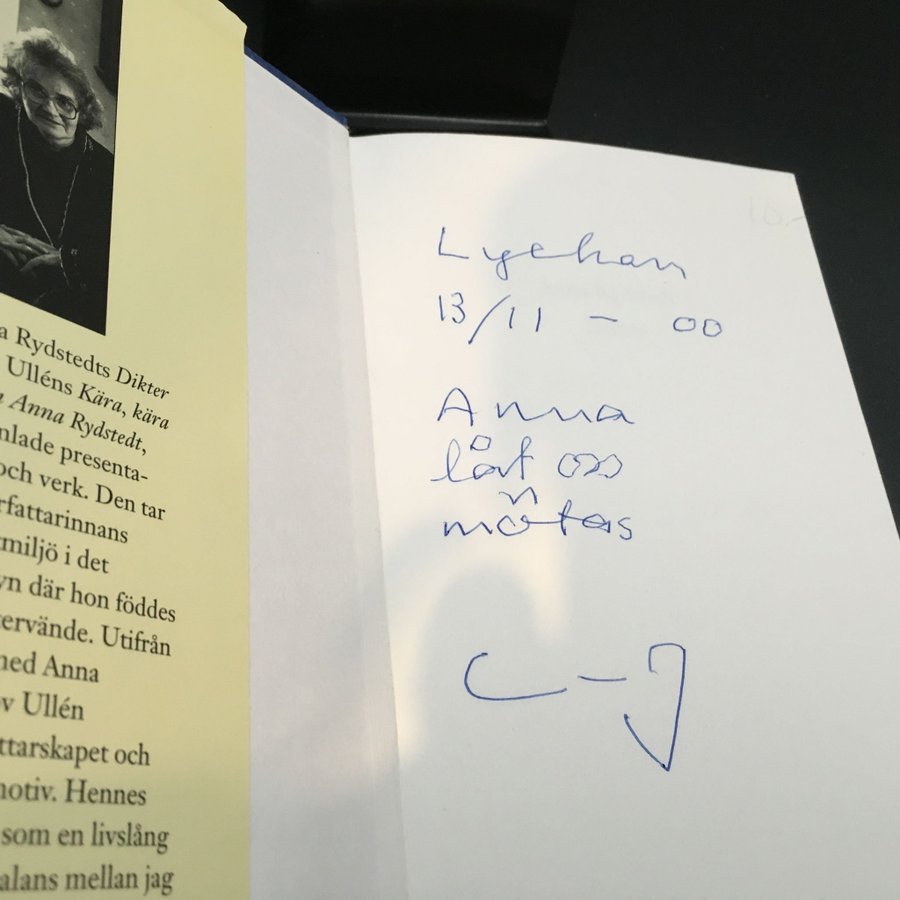 a Rydstedts Dikter
Ulléns Kära, kära
Anna Rydstedt,
nlade presenta-
och verk. Den tar
rfattarinnans
miljö i det
yn där hon föddes
tervände. Utifrån
ned Anna
v Ullén
ttarskapet och
notiv. Hennes
som en livslång
alans mellan jag
Lyckan
13/11 - 00
Anna
låt oss
mötas
C-J